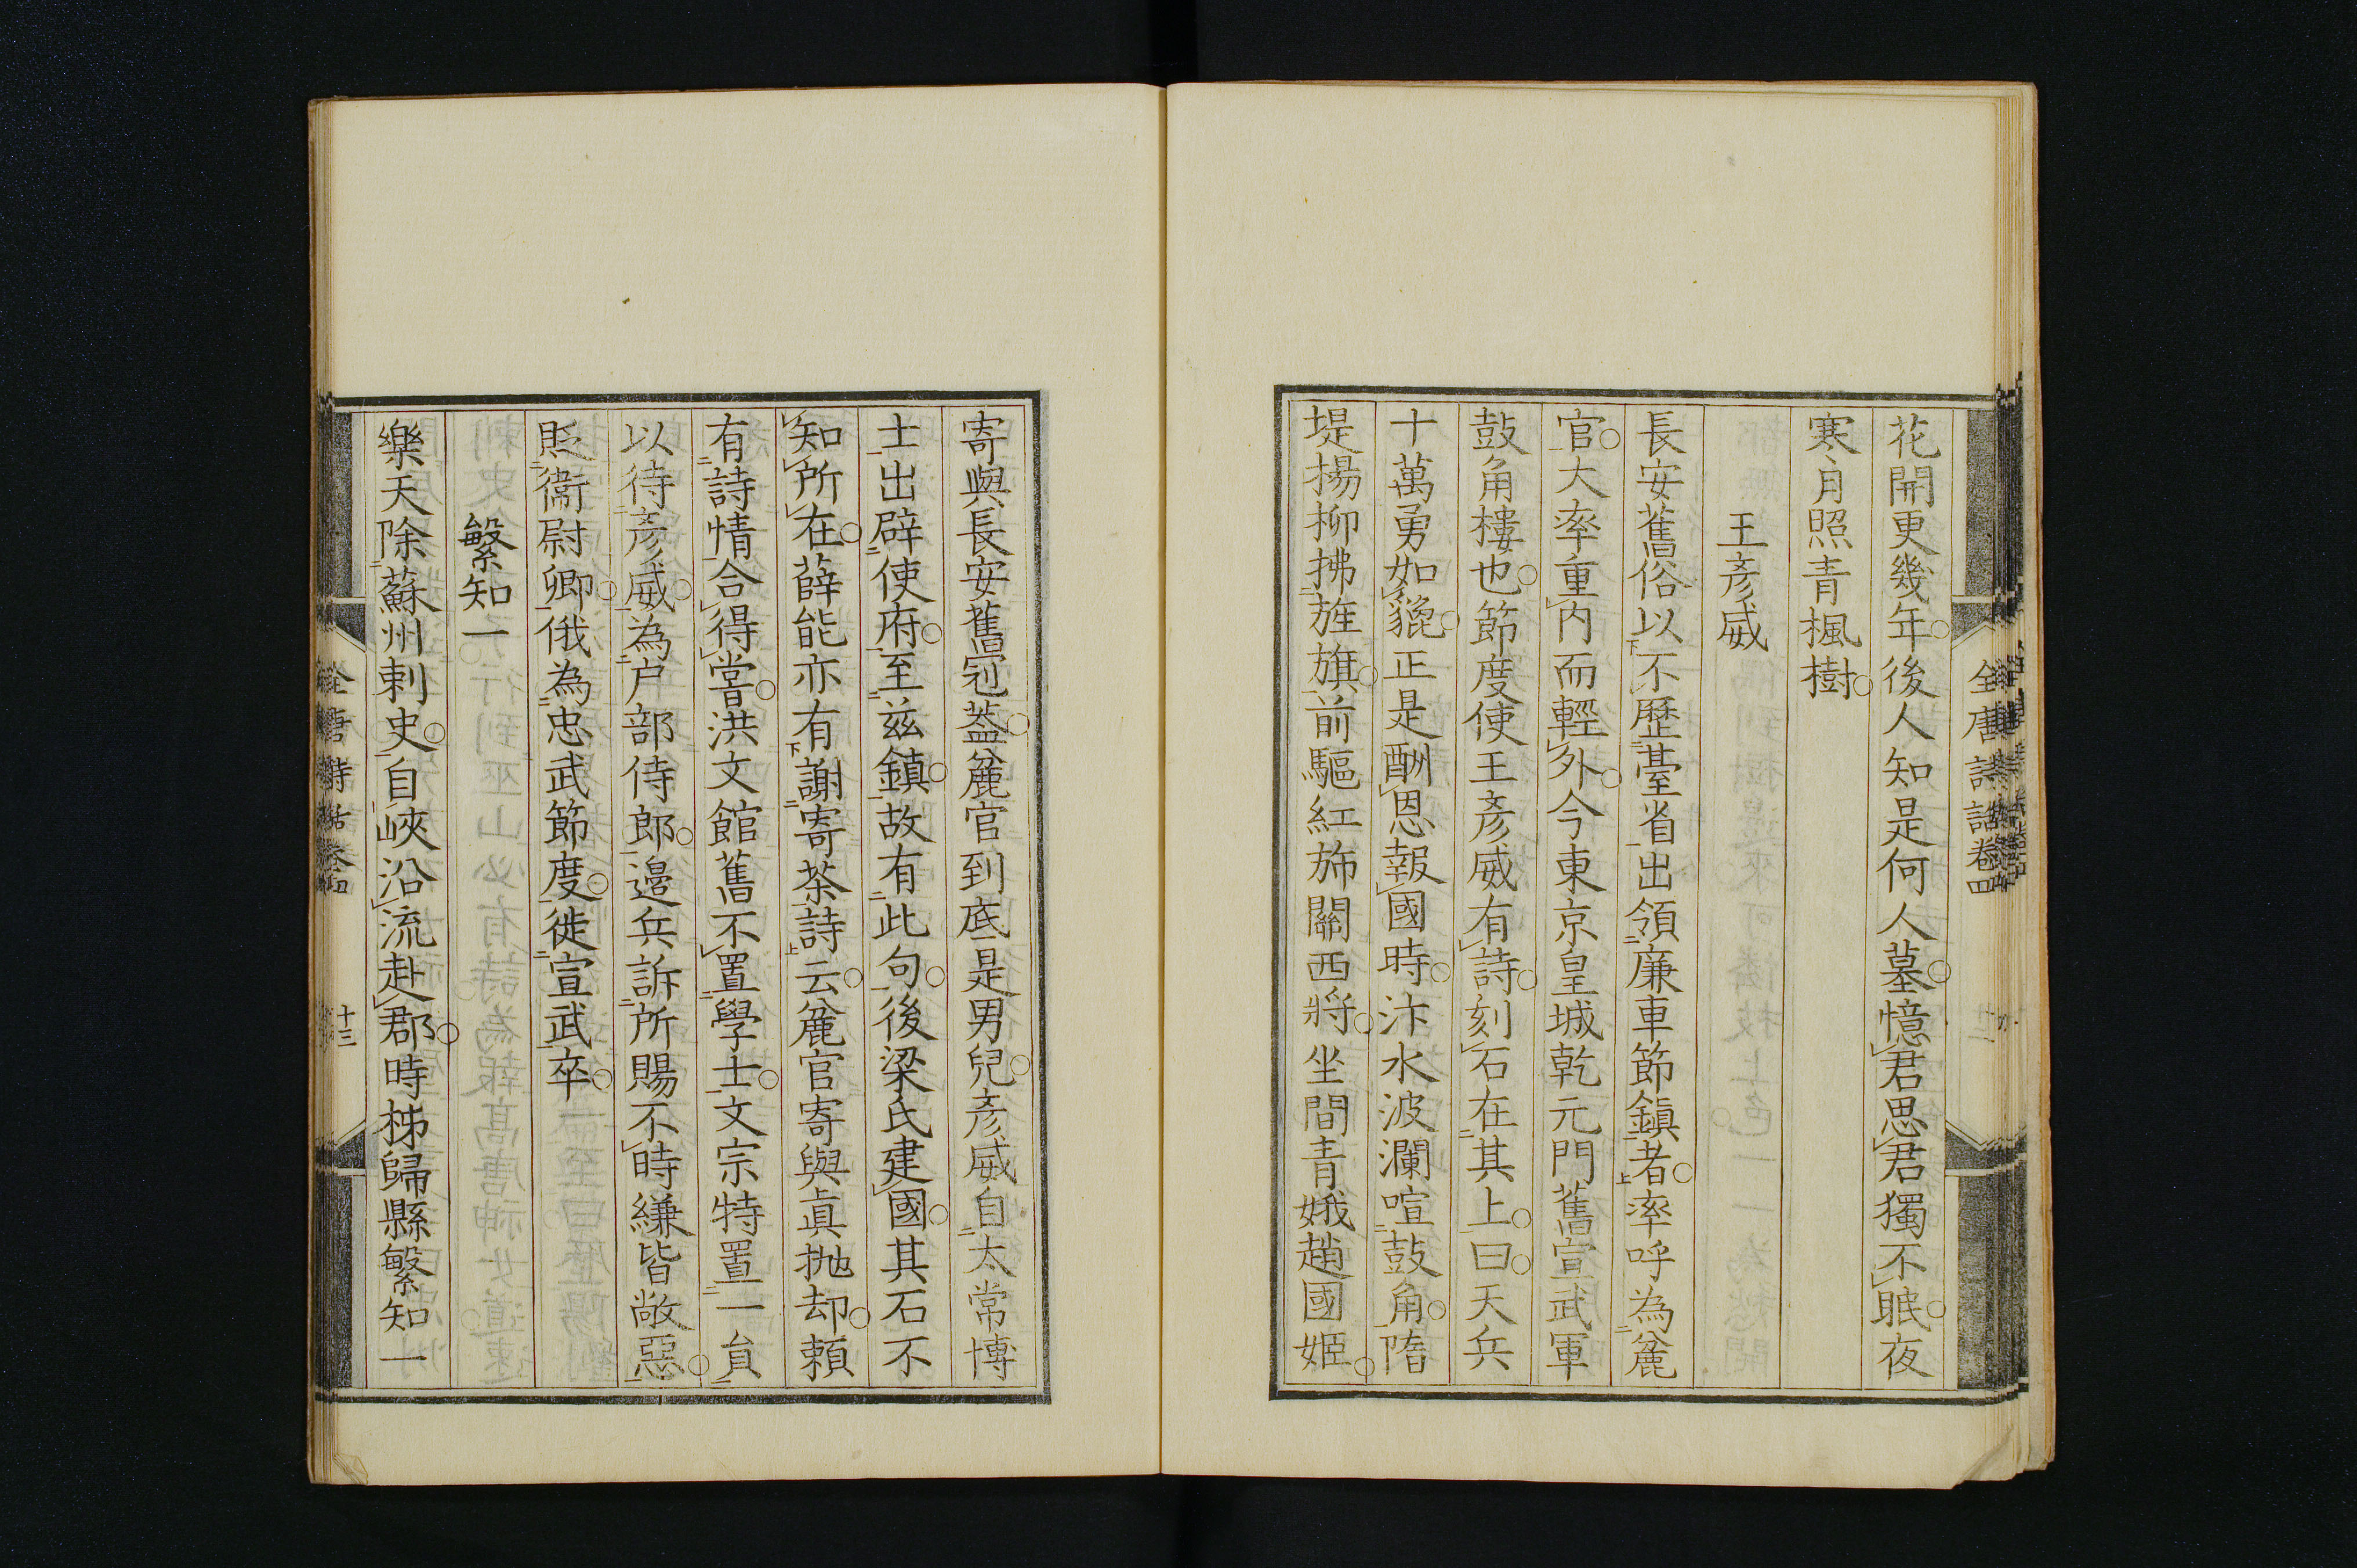 全唐詩話卷四
花開更幾年後人知是何人墓憶君思君獨不眠夜
寒月照青楓樹
王彥威
長安舊俗以不歷臺省出領廉車節鎮者率呼為麄
官大率重內而輕外今東京皇城乾元門舊宣武軍
鼓角樓也節度使王彥威有詩刻石在其上曰天兵
十萬勇如貔正是酬恩報國時汴水波瀾喧鼓角隋
堤揚柳拂旌旗前驅紅旆關西將坐間青娥趙國姬
寄與長安舊冠葢麄官到底是男兒彥威自太常博
士出辟使府至兹鎮故有此句後梁氏建國其石不
知所在薛能亦有謝寄茶詩云麄官寄與真抛却頼
有詩情合得嘗洪文館舊不置學士文宗特置一貟
以待彥威為户部侍郎邉兵訴所賜不時縑皆敝惡
貶衞尉卿俄為忠武節度徙宣武卒
繁知一
樂天除蘇州刺史自峽沿流赴郡時秭歸縣繁知一
全唐詩話卷四
十三